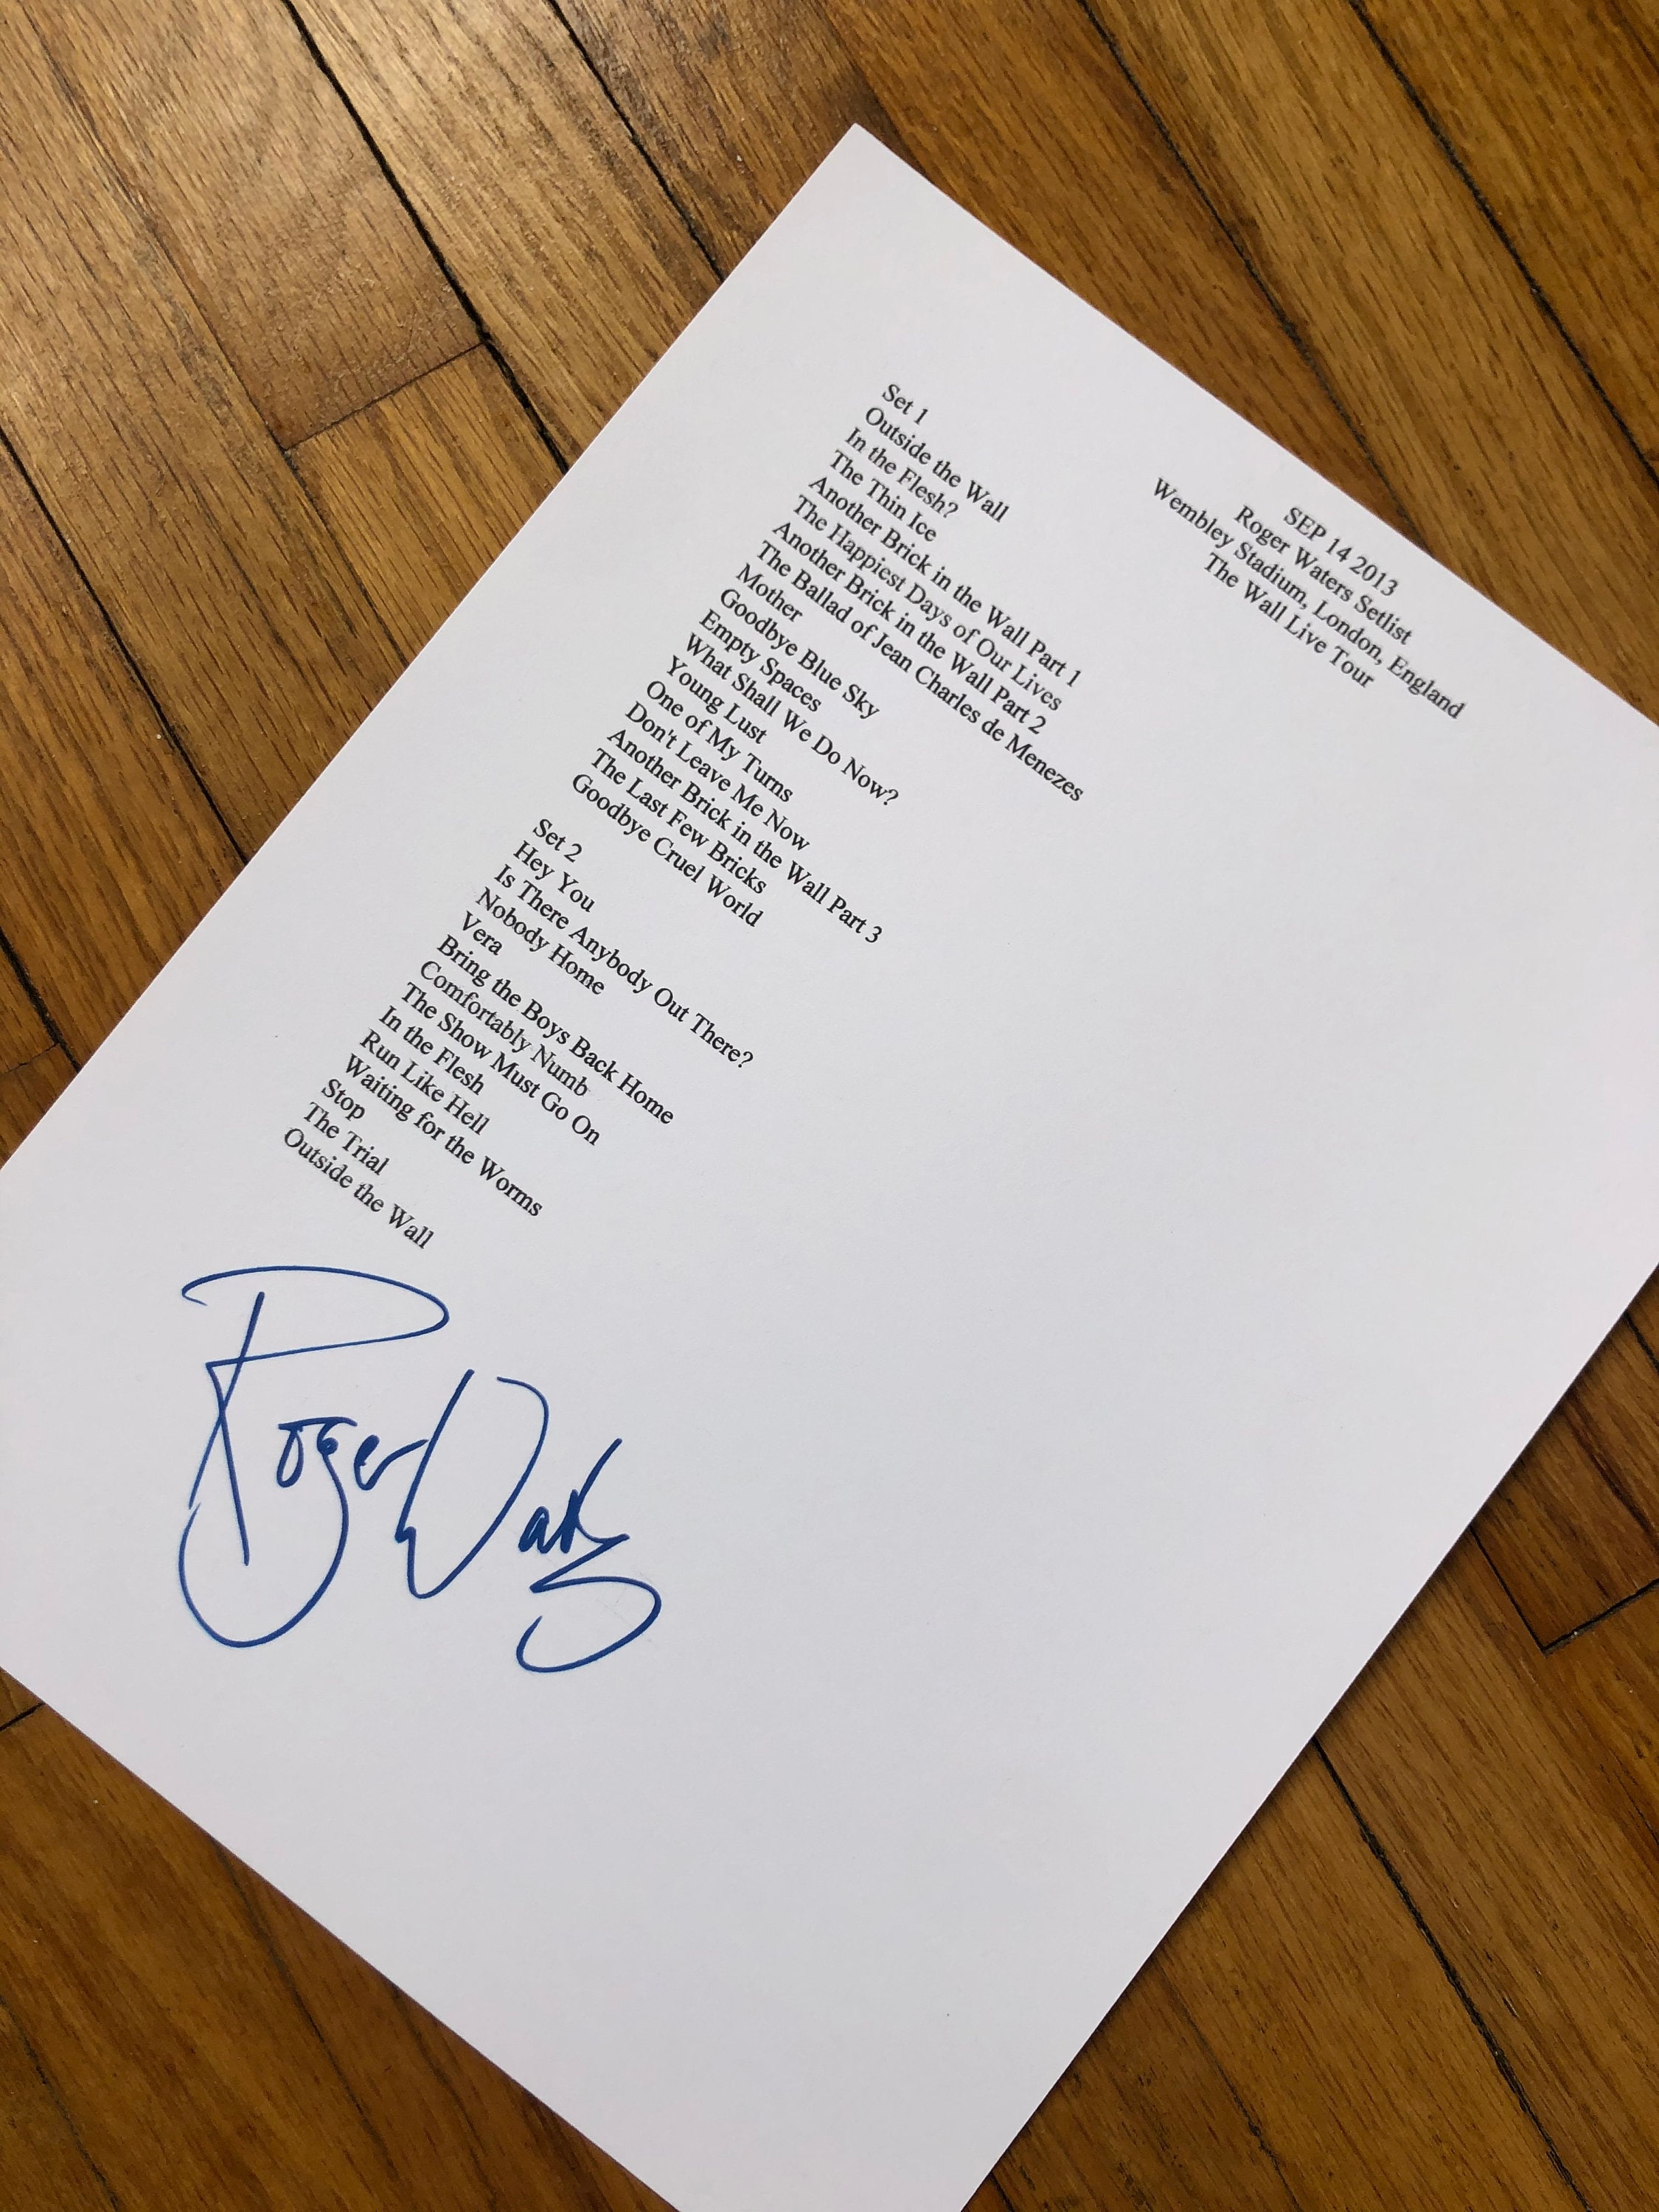 SEP 14 2013
Roger Waters Setlist
Wembley Stadium, London, England
The Wall Live Tour
Set 1
Outside the Wall
In the Flesh?
The Thin Ice
Another Brick in the Wall Part 1
The Happiest Days of Our Lives
Another Brick in the Wall Part 2
The Ballad of Jean Charles de Menezes
Mother
Goodbye Blue Sky
Empty Spaces
What Shall We Do Now?
Young Lust
One of My Turns
Don't Leave Me Now
Another Brick in the Wall Part 3
The Last Few Bricks
Goodbye Cruel World
Set 2
Hey You
Is There Anybody Out There?
Nobody Home
Vera
Bring the Boys Back Home
Comfortably Numb
The Show Must Go On
In the Flesh
Run Like Hell
Waiting for the Worms
Stop
The Trial
Outside the Wall
Roger Waters